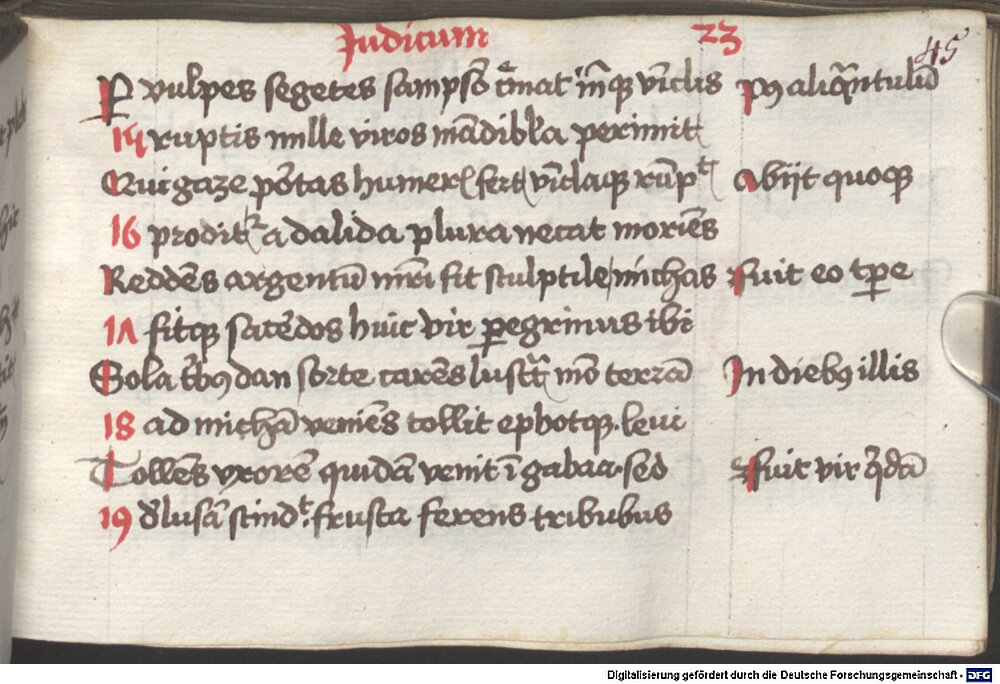 Judicum 23
45
Ꝑ vulpes segetes sampsõ c̃mat inq̃ꝫ vĩclis Pꝰ aliq̃ntulũ
15 ruptis mille viros mãdibl̕a perimit
Qui gaze portas humerꝭ fert vĩclaqꝫ rũpᵗ Abijt quoqꝫ
16 prodit᷑ a dalida plura necat moriẽs
Reddẽs argentũ mr̃i fit sculptile michas Fuit eo tp̱e
17 fitqꝫ sac̕dos huic vir ꝑegrinus ibi
Sola t̕bꝰ dan sorte carẽs lust̃t mõ terrã In diebꝰ illis
18 ad michã veniẽs tollit ephotqꝫ levi
Tollẽs vxorẽ quidã venit ĩ gabaa sed Fuit vir q̃dã
19 d̕lusã scindᵗ frusta ferens tribubus
Digitalisierung gefördert durch die Deutsche Forschungsgemeinschaft - DFG